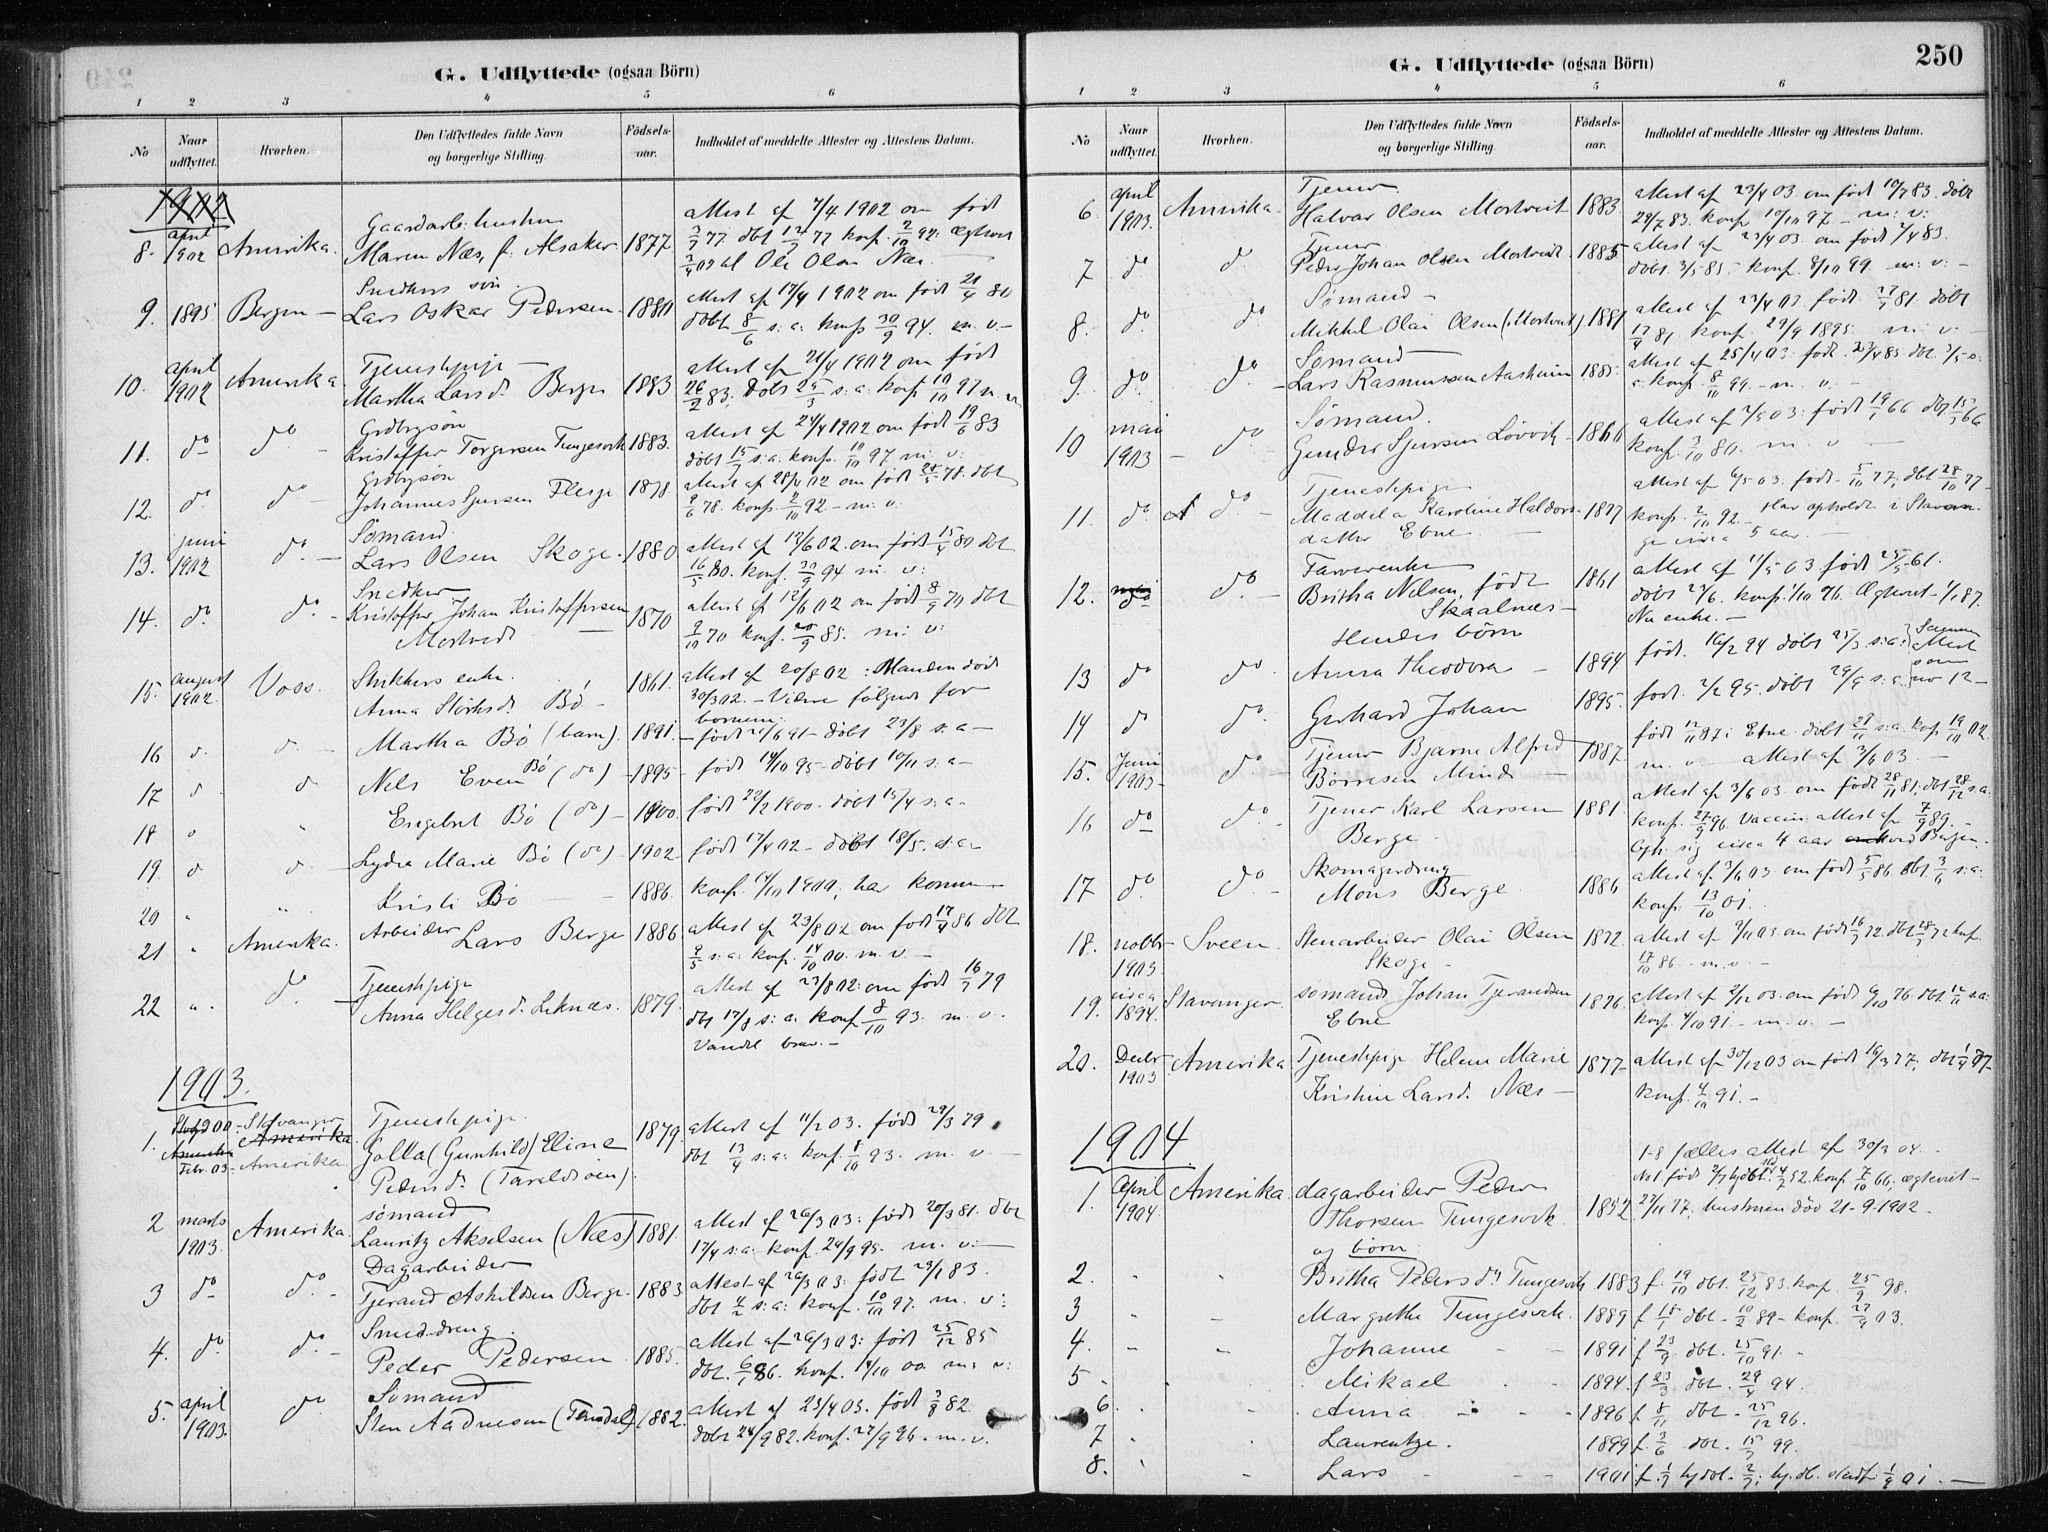 G. Udflyttede (ogsaa Börn)
1 2 3 4 5 6
No Naar udflyttet. Hvorhen. Den Udflyttedes fulde Navn og borgerlige Stilling. Födsels-aar. Indholdet af meddelte Attester og Attestens Datum.
1902
Gaardarb. hustru attest af 7/4 1902 om født
8. april 1902 Amerika. Maren Næs, f. Alsaker 1877 3/7 77 døbt 12/7 77 konf. 2/10 92. Ægteviet
til Ole Olai Næs
Snedkers søn.
9. 1895 Bergen Lars Oskar Pedersen 1880 attest af 17/4 1902 om født 21/4 80
døbt 8/6 s: a: konf 30/9 94. m. v.
10. april 1902 Amerika Tjenestepige attest af 21/4 1902 om født
Martha Larsd. Berge 1883 26/2 83. døbt 25/3 s: a. konf 10/10 97 m v
11. do do Grdbrgsøn Kristoffer Torgersen Tungesvik 1883. attest af 24/4 1902 om født 19/6 83
døbt 15/7 s: a. konf. 10/10 97. m: v:
12. do do Grdbrgsøn Johannes Sjursen Flesje 1878 attest af 28/4 02 om født 28/5 78. døbt
9/6 78. konf. 2/10 92 - m: v:
13. juni 1902 do Sømand. Lars Olsen Skoge 1880 attest af 12/6 02. om født 15/4 80 døbt
16/5 80. konf. 30/9 94 m. v:
14. do do Snedker Kristoffer Johan Kristoffersen 1870 attest af 12/6 02 om født 8/9 70 døbt
Mortvedt 9/10 70 konf. 20/9 85. m: v:
15. august 1902. Voss. enke. 1861. attest af 20/8 02: Manden død
Anna Bø 30/3 02. - Videre følgende for
børnene:
16 d. d. Martha Bø (barn). 1891. født 21/6 91 - døbt 23/8 s: a -
17 d d. Nels Even Bø (do) 1895 født 14/10 95 - døbt 10/11 s: a -
18 Engebret Bø (do) 1900. født 22/2 1900. døbt 15/4 s: a -
19. d d Lydia Marie Bø (do) 1902. født 17/4 02 - døbt 18/5. s: a -
20 " " Kristi Bø 1886. konf. 14/10 1900, har
21 " Amerika. Arbeider Lars Berge 1886 attest af 23/8 02 om født 17/4 86 døbt
9/5 s: a: konf. 14/10 00. m. v.
22 " do Tjenestepige attest af 23/8 02: om født 16/7 79
Anna Helgesd. Leknæs. 1879. dbt 17/8 s: a: konf 8/10 93. m. v.
Vandel brav. -
1903.
1. Stavanger Amerika Febr. 03 - Amerika Tjenestepige. Golla (Gunhild) Eline 1879. attest af 11/2 03. født 29/3 79
Pedersd. (Taraldsøien). dbt 13/4 s: a: konf. 8/10 93. m. v.
2 marts 1903. Amerika sømand Lauritz Akselsen (Næs) 1881. attest af 26/3 03: født 20/3 81. døbt
17/4 s: a: konf. 24/9 95. m. v:
3 do do. Dagarbeider Tjerand Askildsen Berge 1883 attest af 26/3 03: født 29/1 83.
dbt 4/2 s: a: konf. 10/10 97. m. v:
4. do do. Smeddreng. Peder Pedersen 1885. attest af 26/3 03: født 25/12 85
dbt. 6/1 86. konf. 14/10 00. m: v:
5. april 1903. do Sømand Sten Aadnesen (Tensdal) 1882. attest af 23/4 03. født 3/8 82.
døbt 24/9 82. konf. 27/9 96. m. v.
G. Udflyttede (ogsaa Börn) 250
1 2 3 4 5 6
No Naar udflyttet. Hvorhen. Den Udflyttedes fulde Navn og borgerlige Stilling. Födsels-aar. Indholdet af meddelte Attester og Attestens Datum.
6. april 1903. Amerika. Tjener. Halvar Olsen Mortveit 1883. attest af 23/4 03. om født 10/7 83. døbt
29/7 83. konf 10/10 97. - m: v:
7 do d. Tjener Peder Johan Olsen Mortvedt 1885 attest af 23/4 03. om født 2/4 85.
døbt. 3/5 85. - konf. 8/10 99. m: v: -
8. do. do. Sømand - Mikkel Olai Olsen (Mortveit) 1881 attest af 23/4 03. født 27/3 81. døbt
17/4 81. konf. 29/9 1895. m: v:
9. do. do. Sømand Lars Rasmussen Aasheim 1885. attest af 25/4 03: født 23/4 85 dbt. 3/5 s:
a. konf. 8/10 99. - m. v. -
10 mai 1903 do Sømand. Gunder Sjursen Løvvik 1866 attest af 2/5 03: født 19/1 66 dbt 15/3 66
konf. 3/10 80. m. v.
11. do. do. Tjenestepige Maddela Karoline Haldors- 1877 attest af 6/5 03. født 5/10 77; dbt 28/10 77
datter Ebne konf. 2/10 92. - Har opholdt i Stavan-
ger circa 5 aar. -
12. do do. Farverenke Britha Nelsen, født 1861 attest af 11/5 03 født 25/5 61.
Skaalnes døbt 27/6. konf. 1/10 76. Ægteviet 1/1 87.
Hendes børn Nu enke. -
13 do do Anna Theodora 1894 født. 16/2 94 døbt 25/3 s: a: Samme Attest som no 12 -
14 do do. Gerhard Johan 1895. født. 2/2 95. døbt 29/9 s: a:
15. Juni 1903 do. Tjener Bjarne Alfred 1887. født 12/11 87 i Etne. døbt 28/11 s: a. kof. 19/10 02.
Børresen Minde m. v. attest af 3/6 03. -
16 do do Tjener Karl Larsen 1881. attest af 3/6 03 om født 28/11 81; dbt 28/12 s: a.
Berge. konf. 27/9 96. Vaccin: attest af 7/9 89. -
oph. sig circa 4 aar ved Bergen.
17 do. do. Skomagerdreng Mons Berge 1886 attest af 3/6 03 om født 5/5 86. dbt 3/6 s: a:
konf. 13/10 01.
18. novbr 1903. Sveen. Stenarbeider Olai Olsen 1872. attest af 9/11 03. om født 16/7 72. dbt 28/7 72 konf.
Skoge 17/10 86. - m. v. -
19. circa 1894. Stavanger. sømand Johan Tjerandsen 1876 attest af 2/12 03. om født 9/10 76 dbt. 12/11 s: a:
Ebne konf. 4/10 91. - m. v. -
20. Decbr 1903 Amerika Tjenestepige Helene Marie 1877 attest af 30/12 03 om født 16/3 77. dbt 1/4 77 -
Kristine Larsd. Næs konf. 4/10 91. -
1904
1-8 fælles attest af 30/3 04. -
1. April 1904. Amerika. dagarbeider Peder No 1 født 2/7 hjdbt. 4/7 52. konf. 7/10 66; ægteviet -
Thorsen Tungesvik. 1852 27/11 77, hustruen død 21-9-1902.
og børn:
2. " " Britha Pedersdtr Tungesvik 1883 f. 19/10 dbt. 25/12 83. kof. 25/9 98.
3 " " Margrethe Tungesvik 1889 f 15/1 dbt. 10/2 89 - konf. 27/9 03.
4. " " Johanne 1891 f 23/9. dbt. 25/10 91. -
5 . Mikael 1894. f 23/3 dbt. 29/4 94.
6. Anna 1896 f. 8/11 dbt 25/12 96.
7 Laurentze. 1899 f. 3/6 dbt. 15/7 99.
8. Lars 1901. f. 1/7 hjdbt. 2/7; hj. db. stadf. 1/9 01.